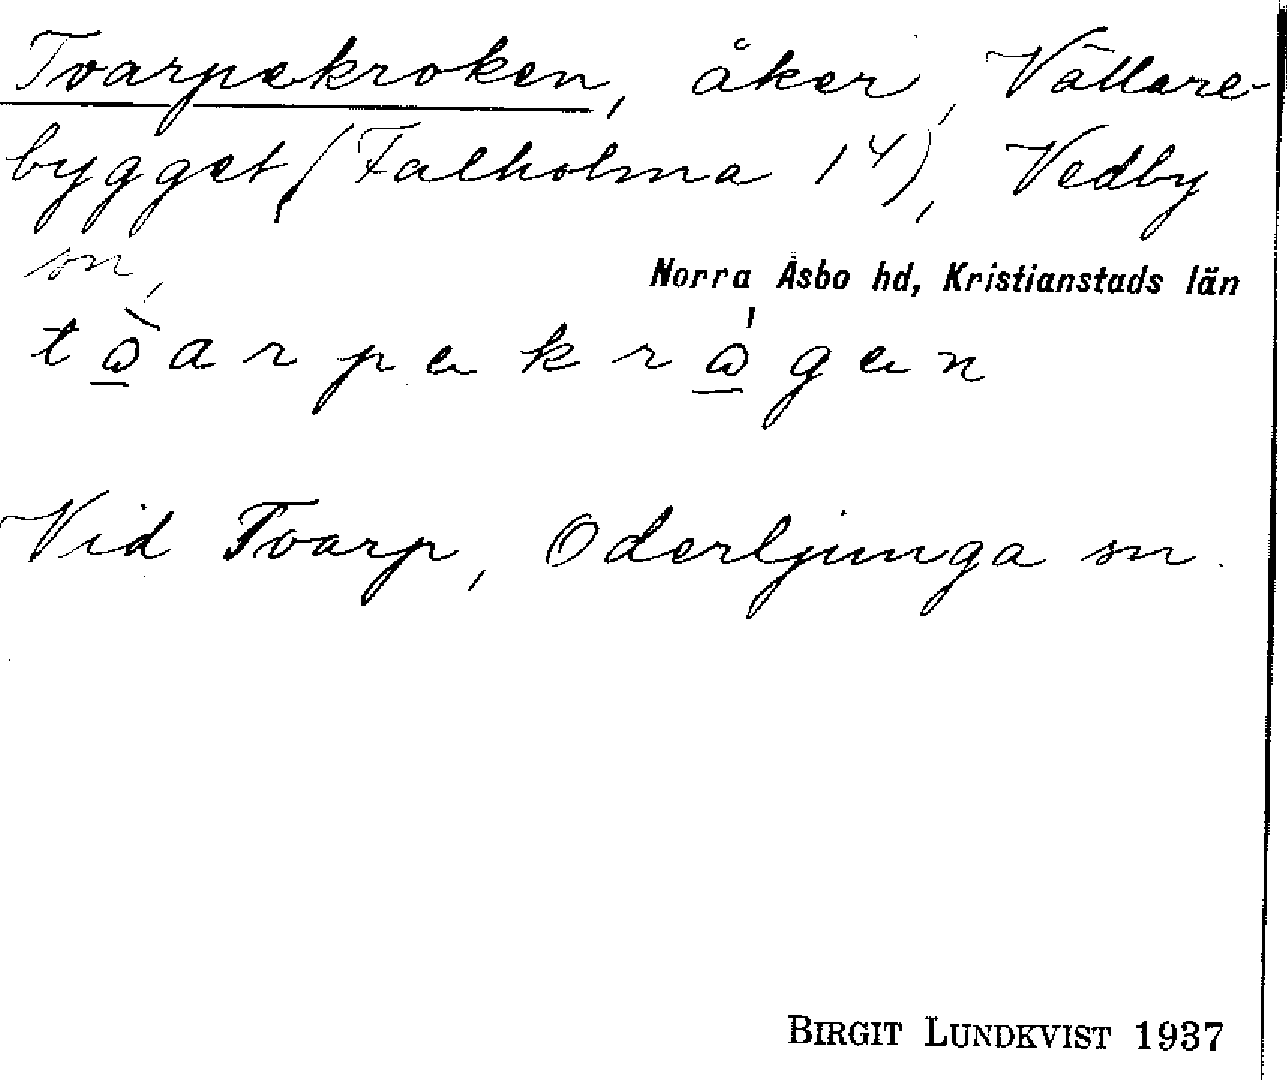 Tvarpekroken, åker, Vällare-
bygget (Falholma 1⁴), Vedby
sn,
Norra Åsbo hd, Kristianstads län
Vid Tvarp, Oderljunga sn.
BIRGIT LUNDKVIST 1937